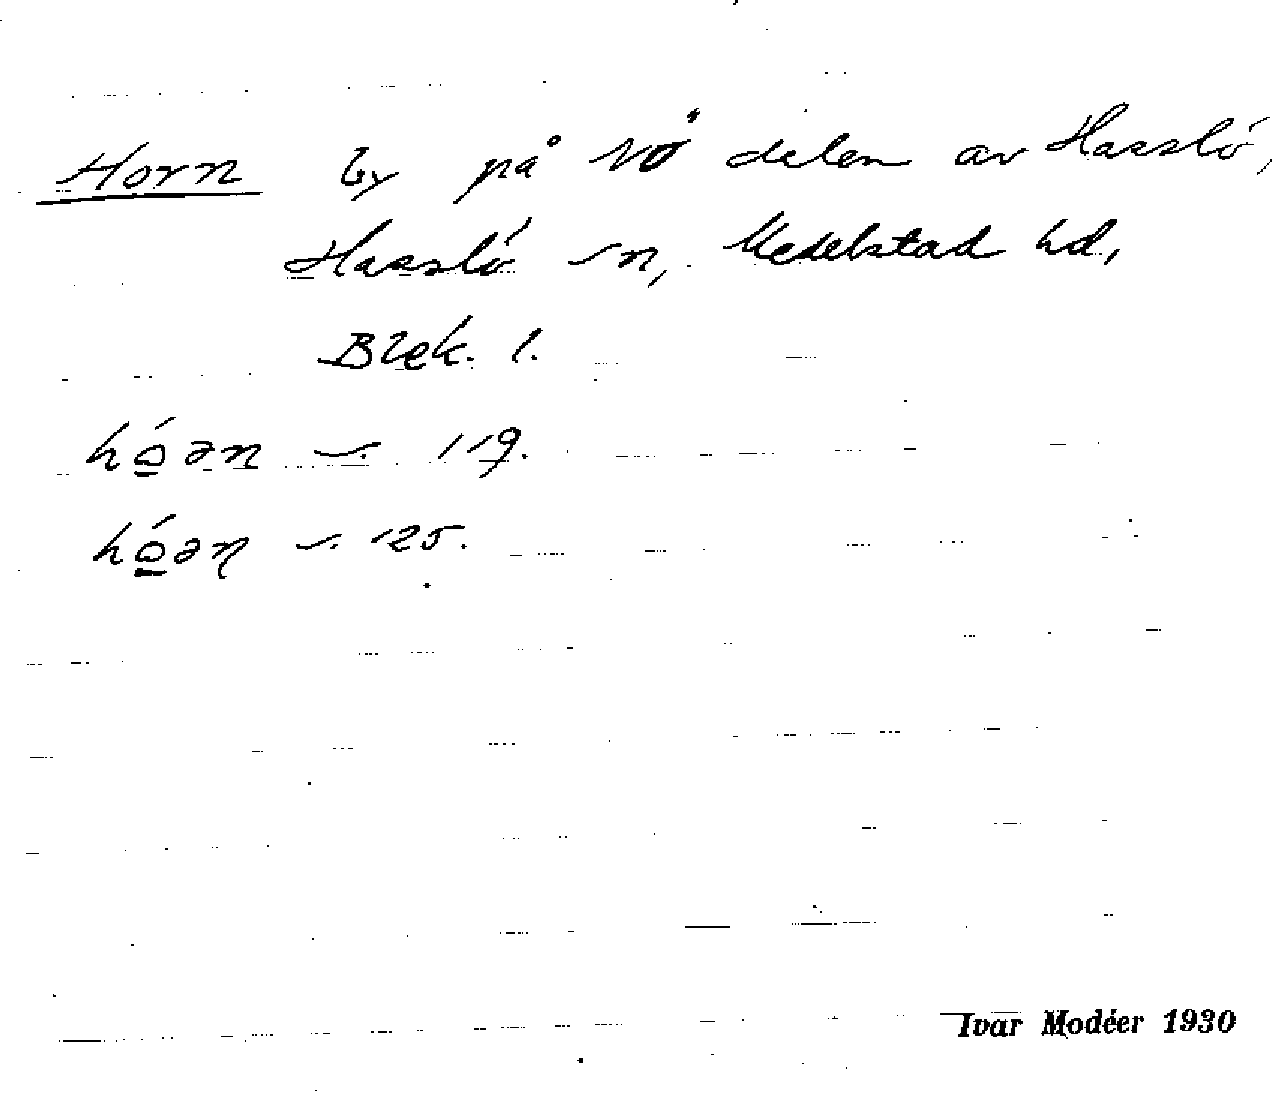 Horn by på NÖ delen av Hasslö,
Hasslö sn, Medelstad hd,
Blek. l.
hó̲ən 119.
hó̲əŋ 125.
Ivar Modéer 1930